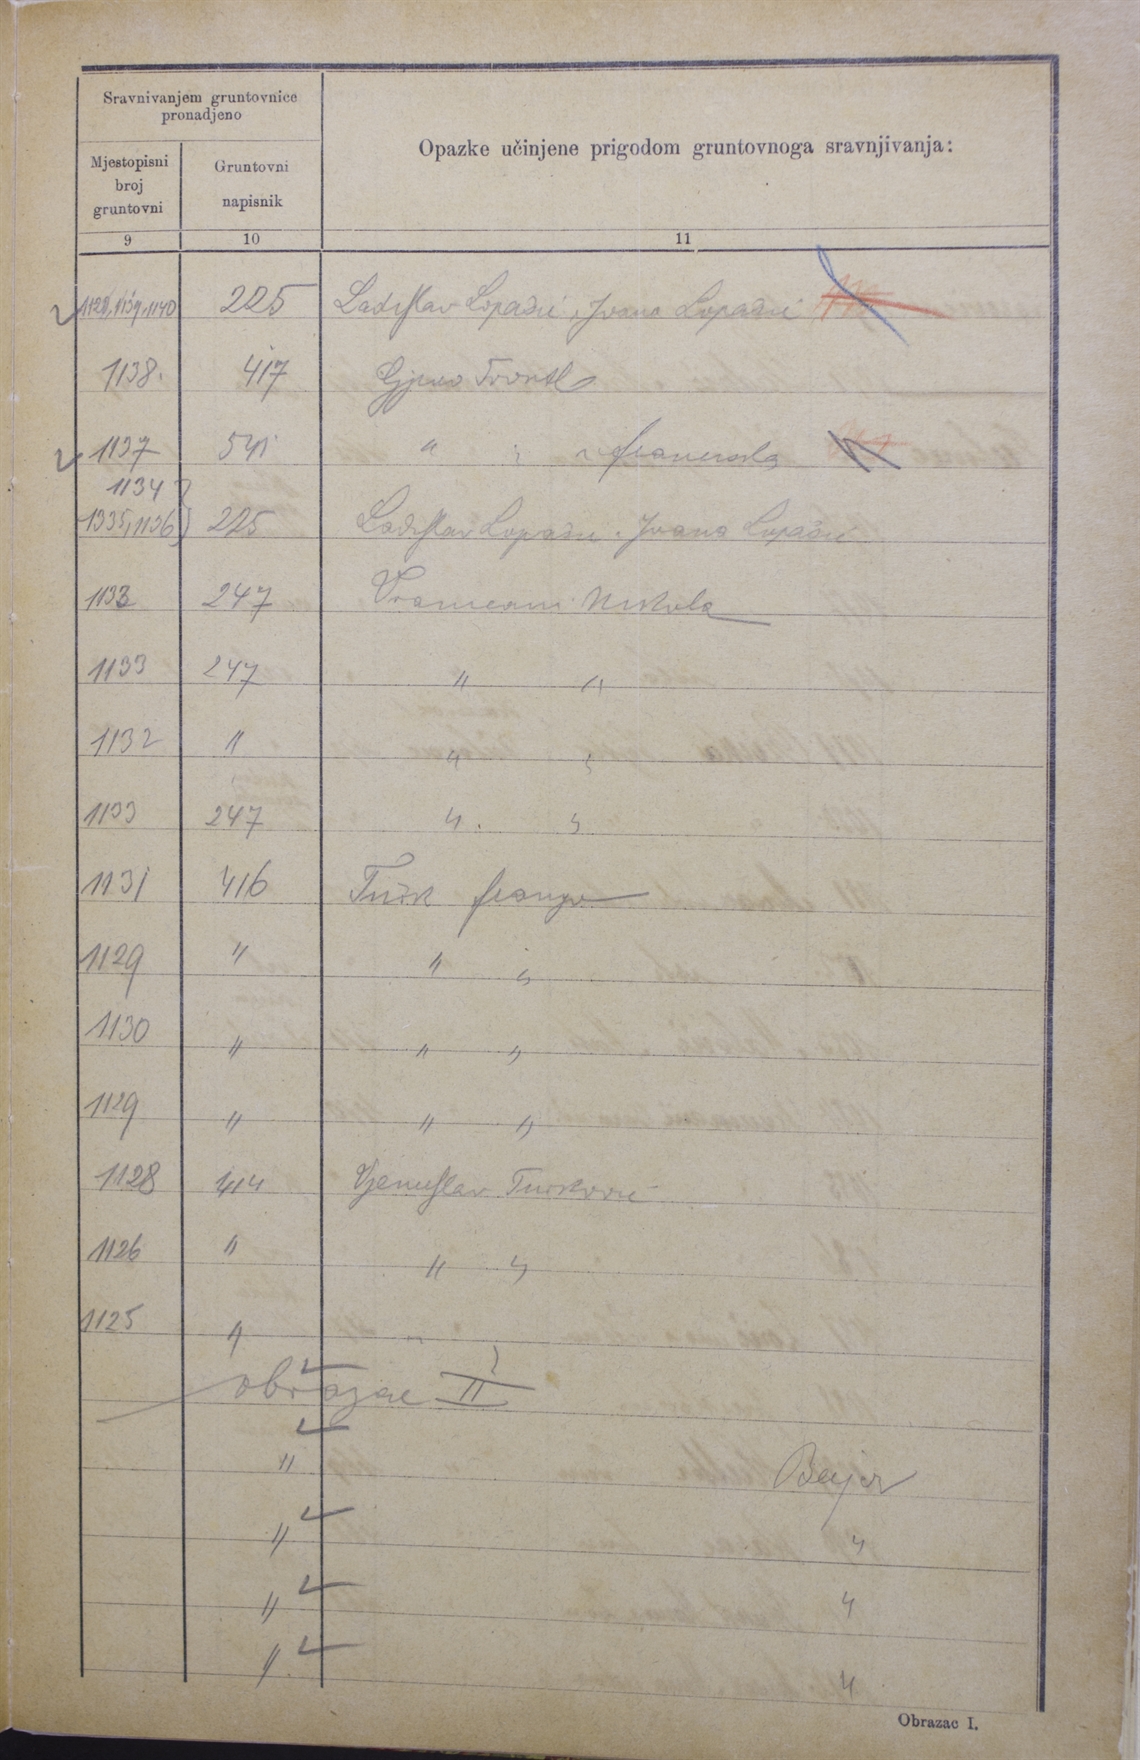 Sravnivanjem gruntovnice
pronadjeno
Opazke učinjene prigodom gruntovnoga sravnjivanja:
Mjestopisni
broj
gruntovni
Gruntovni
napisnik
9 10 11
1139, 1140 225 Ladislav Lopašić, Ivana Lopašić
1138. 417 Gjuro
1137 541 " "
1134
1335, 1136 225 Ladislav Lopašić, Ivana Lopašić
1133 247 Vranicani Nikola
1133 247 " "
1132 " " "
1133 247 " "
1131 416 Turk Franjo
1129 " " "
1130 " " "
1129 " " "
1128 414 Turković
1126 " " "
1125 " " "
obrazac II
" Bayer
" "
" "
" "
Obrazac I.